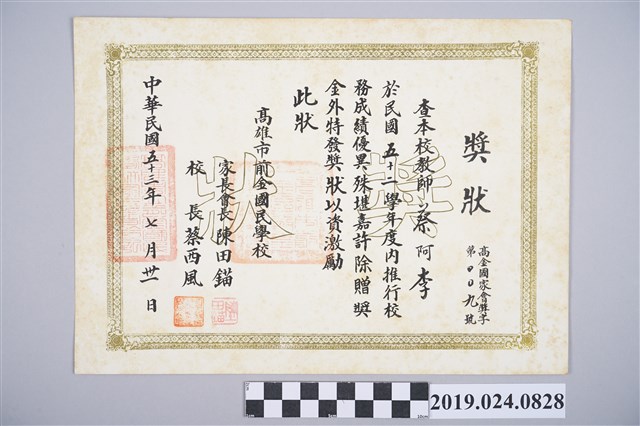 獎狀
高金國家會獎字
第〇〇九號
查本校教師蔡阿李
於民國五十二學年度內推行校
務成績優異殊堪嘉許除贈獎
金外特發獎狀以資激勵
此狀
高雄市前金國民學校
家長會長陳田錨
校長蔡西風
中華民國五十三年七月卅一日
獎狀
2019.024.0828